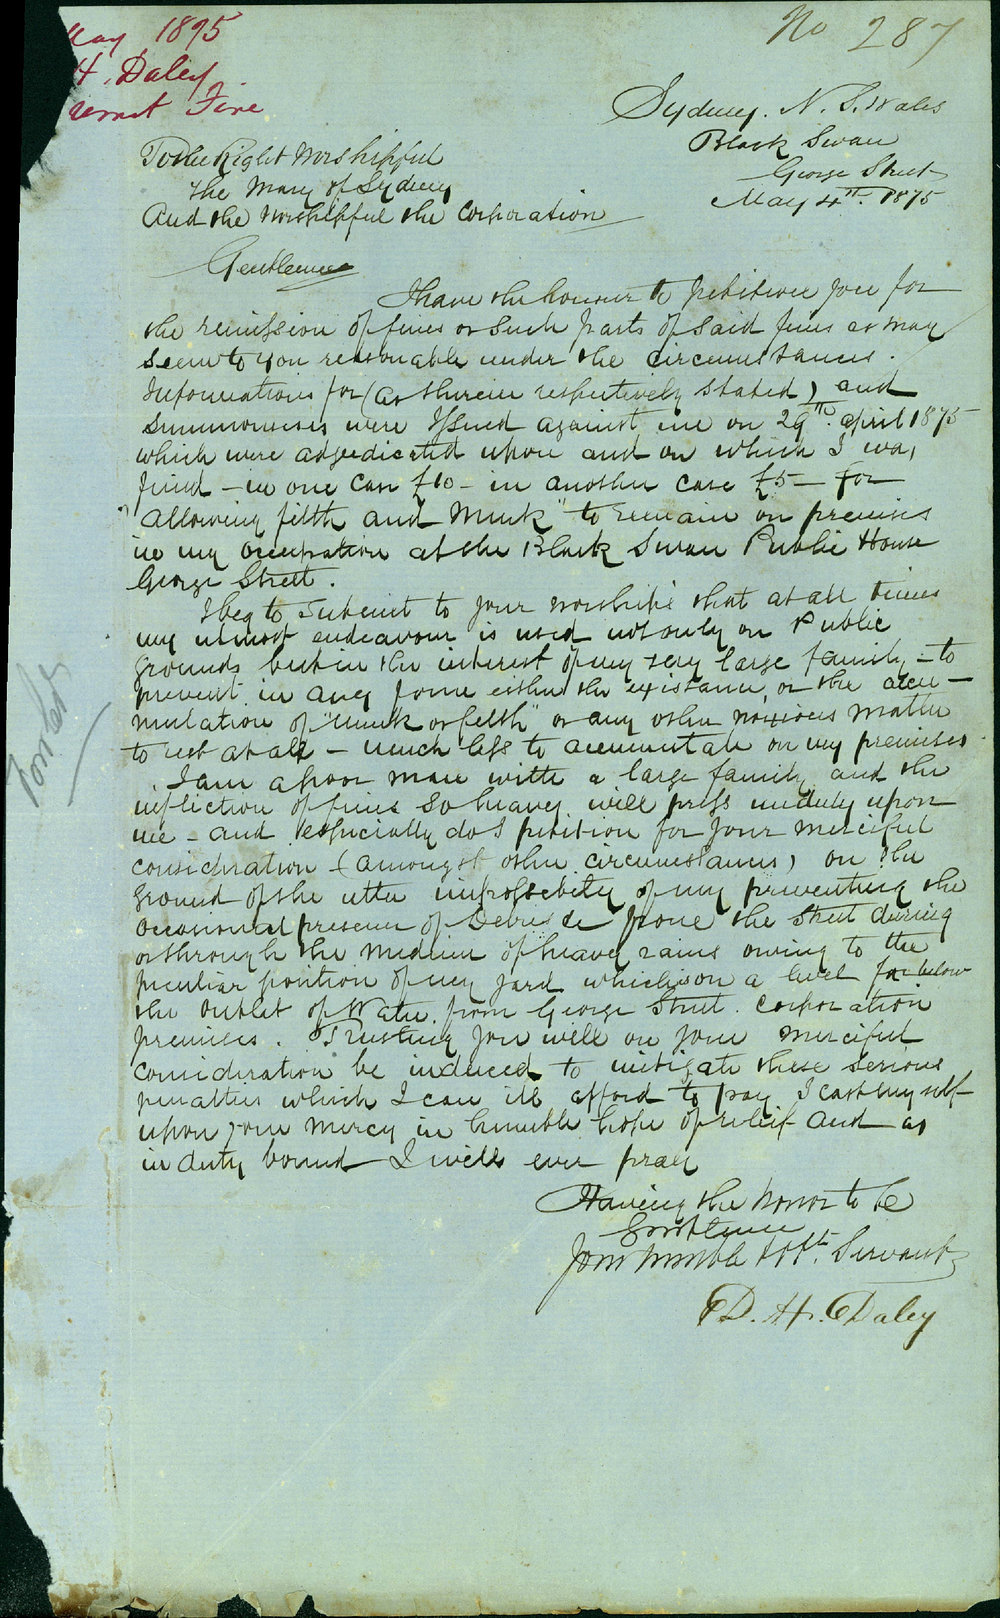 May 1875
H. Daley
remit Fine
No 287
Sydney. N. S. Wales
Black Swan
George Street
May 4th. 1875
To the Right Worshipful
the Mayr of Sydney
And the Worshipful the Corporation
Gentlemen
I have the honour to petition you for
the remission of fines or such parts of said fines as may
seem to you reasonable under the circumstances.
Informations for (as therein respectively stated) and
summonses were issued against me on 29th. april 1875
which were adjudicated upon and on which I was
fined - in one case £10 - in another case £5 - for
"allowing filth and Muck" to remain on premises
in my occupation at the Black Swan Public House
George Street.
I beg to submit to your worships that at all times
my utmost endeavour is used not only on Public
Grounds but in the interest of my very large family - to
prevent in any form either the existance, or the accu-
mulation of "muck or filth" or any other noxious matter
to rest at all - much less to accumulate on my premises
I am a poor man with a large family and the
infliction of fines so heavy will press unduly upon
me - and especially do I petition for your merciful
consideration (amongst other circumstances) on the
Ground of the utter impossebity of my preventing the
occasional presence of Debris &c from the street during
or through the medium of heavy rains owing to the
peculiar position of my yard which is on a level far below
the outlet of Water from George Street. Corporation
premises. Trusting you will on your merciful
consideration be induced to mitigate these serious
penalties which I can ill afford to pay I cast myself
upon your mercy in humble hope of relief and as
in duty bound I will ever pray
Having the honor to be
Gentlemen
Your humble & obt. Servant
D. H. Daley